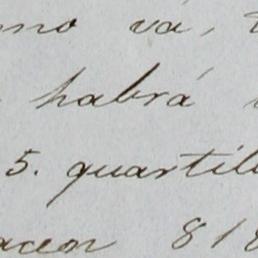 mo va,
habrá
5. quartil
acen 818